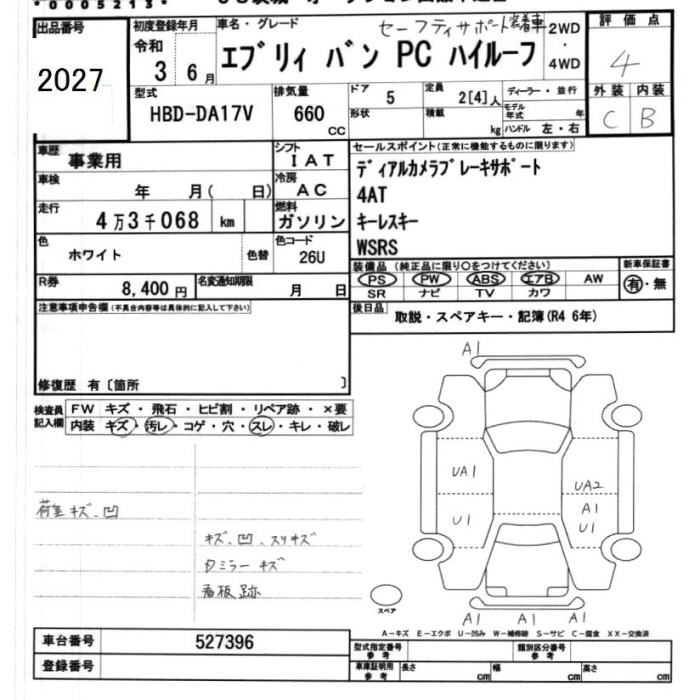 *0005213*
出品番号
2027
初度登録年月
令和
3 6月
車名・グレード
セーフティサポート装着車
エブリィ バン PC ハイルーフ
2WD
・
4WD
評価点
4
外装 内装
C B
型式
HBD-DA17V
排気量
660
CC
ドア
5
形状
定員
2[4]人
積載
kg
ディーラー・並行
モデル年式 年
ハンドル 左・右
車歴
事業用
シフト
IAT
車検
年 月( 日)
冷房
AC
走行
4万3千068 km
燃料
ガソリン
色
ホワイト
色替
色コード
26U
R券
8,400円
名変通知期限
月 日
セールスポイント(正常に機能するものに限ります)
ディアルカメラブレーキサポート
4AT
キーレスキー
WSRS
装備品(純正品に限り○をつけてください)
PS PW ABS エアB AW
SR ナビ TV カワ
新車保証書
有・無
後日品
取説・スペアキー・記簿(R4 6年)
注意事項申告欄(不具合内容等は具体的に記入して下さい)
修復歴 有〔箇所 〕
検査員
記入欄
FW キズ・飛石・ヒビ割・リペア跡・×要
内装 キズ・汚レ・コゲ・穴・スレ・キレ・破レ
荷室キズ、凹
キズ、凹、スリキズ
ミラーキズ
看板跡
A1
UA1
U1
UA2
A1
U1
A1 A1 A1
スペア
A-キズ E-エクボ U-凹み W-補修跡 S-サビ C-腐食 XX-交換済
車台番号
527396
登録番号
型式指定番号
参考
類別区分番号
参考
車庫証明用
参考
長さ cm
幅 cm
高さ cm